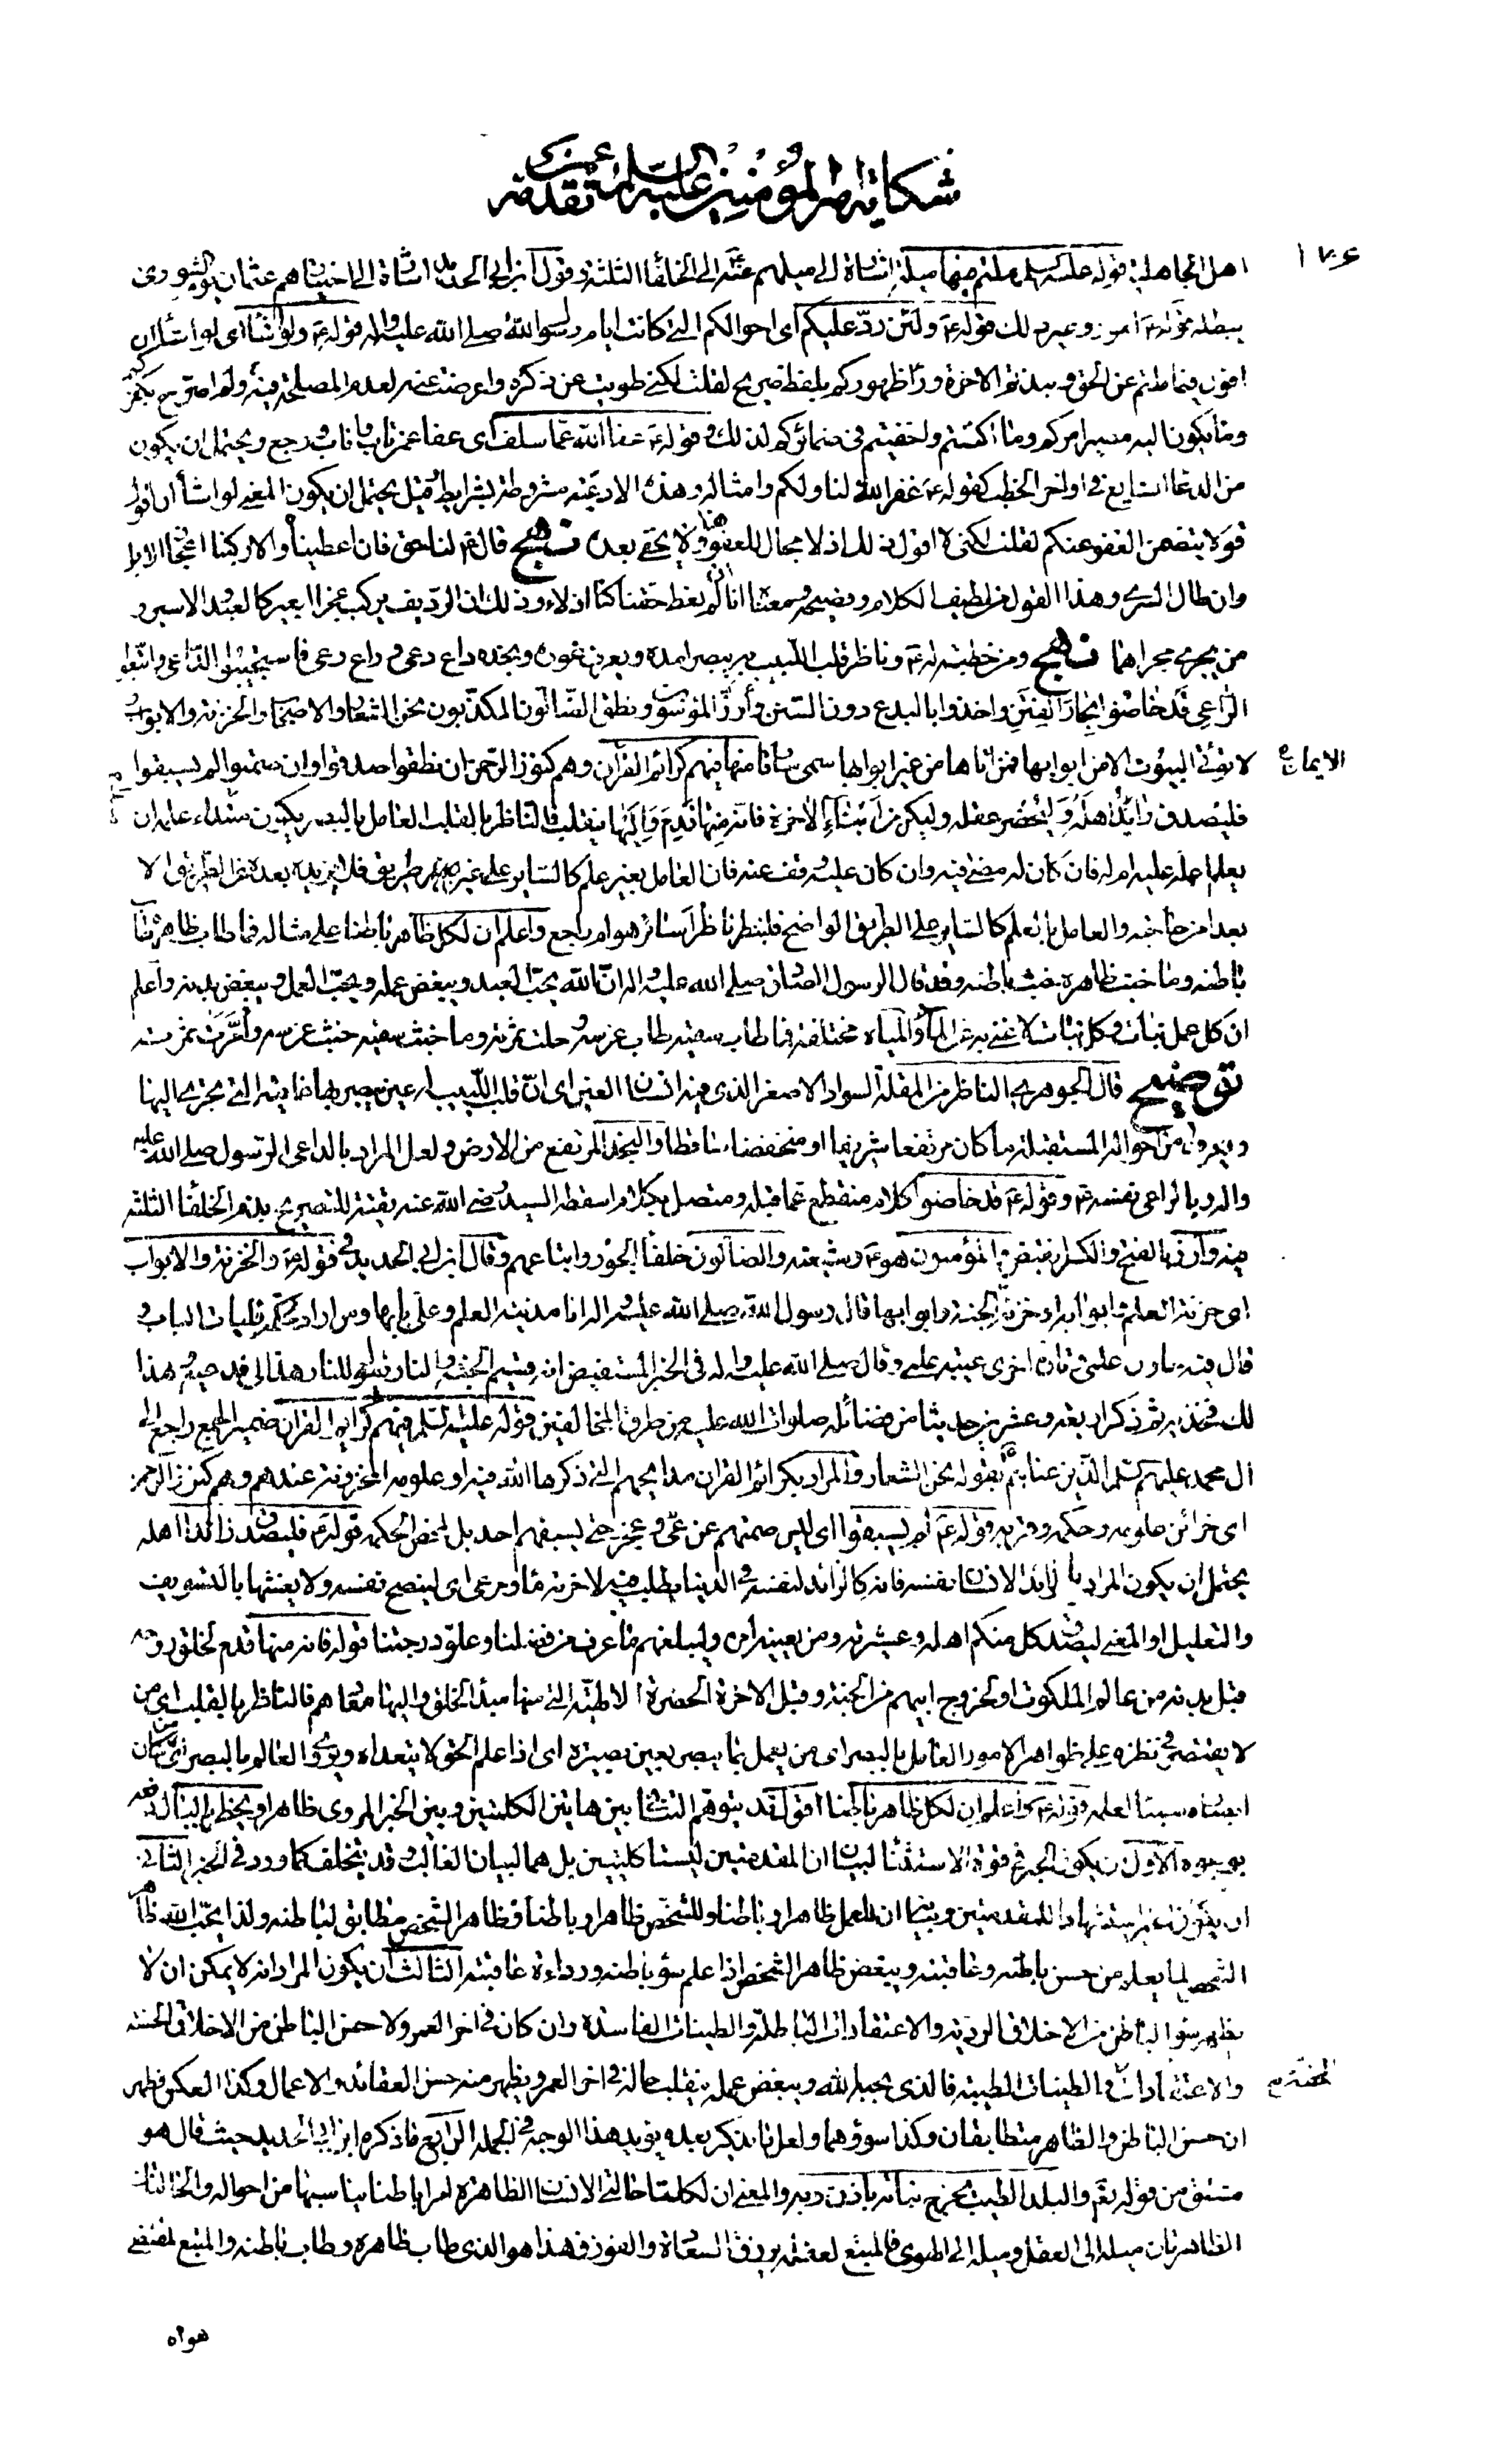 شكاية امير المؤمنين عليه السلم عمن تقدمه
١٧٤
اهل الجاهلية قوله عليه السلم ملتم فيها ميلة اشارة الى ميلهم عنه الى الخلفا الثلثة وقول ابن ابي الحديد اشارة الى اختيارهم عثمان يوم الشورى
يبطله قوله ع امور وغير ذلك قوله ع ولئن رد عليكم اى احوالكم التى كانت ايام رسول الله صلى الله عليه واله قوله ع ولو اشاء اى لو اشاء ان
اقول فيما ملتم عن الحق و نبذتم الاخرة وراء ظهوركم بلفظ صريح لقلت لكنى طويت عن ذكره واعرضت عنه لعدم المصلحة فيه ولم اصرح بكفركم
وما يكون اليه مصير امركم وما اكننتم واخفيتم فى ضمائركم لذلك وقوله ع عفا الله عما سلف اى عفا عمن تاب واناب ورجع ويحتمل ان يكون
من الدعا الشايع فى اواخر الخطب كقوله ع غفر الله لنا ولكم وامثاله وهذه الادعية مشروطة بشرايط وقيل يحتمل ان يكون المعنى لو اشأ ان اقول
قولا يتضمن العفو عنكم لقلت لكنى لا اقول ذلك اذ لا مجال للعفو هنا ولا يخفى بعده نهج قال ع لنا حق فان اعطيناه والا ركبنا اعجاز الابل
وان طال السرى وهذا القول من لطيف الكلام وفصيحه ومعناه انا ان لم نعط حقنا كنا اذلاء وذلك ان الرديف يركب عجز البعير كالعبد والاسير و
من يجرى مجراهما نهج ومن خطبة له ع وناظر قلب اللبيب به يبصر امده ويعرف غوره ونجده داع دعى و راع رعى فاستجيبوا للداعى واتبعوا
الراعى قد خاضوا بحار الفتن واخذوا بالبدع دون السنن وأرز المؤمنون ونطق الضالون المكذبون نحن الشعار والاصحاب والخزنة والابواب
لا تؤتى البيوت الا من ابوابها فمن اتاها من غير ابوابها سمى سارقا منها فيهم كرائم القرآن وهم كنوز الرحمن ان نطقوا صدقوا وان صمتوا لم يسبقوا
الايمان
فليصدق رائد اهله وليحضر عقله وليكن من ابناء الاخرة فانه منها قدم واليها ينقلب فالناظر بالقلب العامل بالبصر يكون مبتداء عمله ان
يعلم اعمله عليه ام له فان كان له مضى فيه وان كان عليه وقف عنه فان العامل بغير علم كالساير على غير طريق فلا يزيده بعده عن الطريق الا
بعدا من حاجته والعامل بالعلم كالساير على الطريق الواضح فلينظر ناظر اسائر هو ام راجع واعلم ان لكل ظاهر باطنا على مثاله فما طاب ظاهره طاب
باطنه وما خبث ظاهره خبث باطنه وقد قال الرسول الصادق صلى الله عليه واله ان الله يحب العبد ويبغض عمله ويحب العمل ويبغض بدنه واعلم
ان كل عمل نبات وكل نبات لا غنى به عن الماء والمياه مختلفة فما طاب سقيه طاب غرسه وحلت ثمرته وما خبث سقيه خبث غرسه وأمرت ثمرته
توضيح قال الجوهرى الناظر من المقلة السواد الاصغر الذى فيه انسان العين اى ان قلب اللبيب له عين يبصر بها غايته التى يجرى اليها
ويعرف من احواله المستقبلة ما كان مرتفعا شريفا او منخفضا ساقطا والنجد المرتفع من الارض ولعل المراد بالداعى الرسول صلى الله عليه
واله وبالراعى نفسه ع وقوله ع قد خاضوا كلام منقطع عما قبله ومتصل بكلام اسقطه السيد رضى الله عنه تقية للتصريح بذم الخلفا الثلثة
فيه وأرز بالفتح والكسر انقبض والمؤمنون هو ع وشيعته والضالون خلفا الجور واتباعهم وقال ابن ابى الحديد فى قوله ع والخزنة والابواب
اى خزنة العلم وابوابه او خزنة الجنة وابوابها قال رسول الله صلى الله عليه واله انا مدينة العلم وعلى بابها ومن اراد الحكمة فليات الباب و
قال فيه خازن علمى وتارة اخرى عيبة علمى وقال صلى الله عليه واله فى الخبر المستفيض انه قسيم الجنة والنار يقول للنار هذا لى فدعيه وهذا
لك فخذيه ثم ذكر اربعة وعشرين حديثا من فضائله صلوات الله عليه من طرق المخالفين قوله عليه السلم فيهم كرائم القرآن ضمير الجمع راجع الى
ال محمد عليهم السلم الذين عناهم بقوله نحن الشعار والمراد بكرائم القرآن مدايحهم التى ذكرها الله فيه او علومه المخزونة عندهم وهم كنوز الرحمن
اى خزائن علومه وحكمه وقربه وقوله ع لم يسبقوا اى ليس صمتهم عن عى وعجز حتى يسبقهم احد بل لمحض الحكمة قوله ع فليصدق رائد اهله
يحتمل ان يكون المراد بالرائد الانسان نفسه فانه كالرائد لنفسه فى الدنيا يطلب فيه لاخرته ماء ومرعى اى لينصح نفسه ولا يغشها بالتسويف
والتعليل او المعنى ليصدق كل منكم اهله وعشيرته ومن يعنيه امره وليبلغهم ما عرف من فضلنا وعلو درجتنا قوله فانه منها قدم لخلق روحه
قبل بدنه من عالم الملكوت او لخروج ابيهم من الجنة وقيل الاخرة الحضرة الالهية التى منها مبدأ الخلق واليها معادهم فالناظر بالقلب اى من
لا يقتصر فى نظره على ظواهر الامور العامل بالبصر اى من يعمل بما يبصر بعين بصيرة اى اذا علم الحق لا يتعداه ويروى والعالم بالبصر اى من كان
ابصاره سببا لعلمه وقوله ع واعلم ان لكل ظاهر باطنا اقول قد يتوهم التنافى بين هاتين الكليتين وبين الخبر المروى ظاهرا ويخطر بالبال دفعه
بوجوه الاول ان يكون الخبر فى قوة الاستثنا لبيان ان المقدمتين ليستا كليتين بل هما لبيان الغالب وقد يتخلف كما ورد فى الخبر الثانى
ان يكون الخبر استشهادا للمقدمتين وبيانه ان للعمل ظاهرا وباطنا وللشخص ظاهرا وباطنا وظاهر الشخص مطابق لباطنه ولذا يحب الله ظاهر
الشخص لما يعلم من حسن باطنه وعاقبته ويبغض ظاهر الشخص اذا علم سوء باطنه ورداءة عاقبته الثالث ان يكون المراد انه لا يمكن ان لا
يظهر سوء الباطن من الاخلاق الردية والاعتقادات الباطلة والطينات الفاسدة وان كان فى اخر العمر ولا حسن الباطن من الاخلاق الحسنة
والاعتقادات الحقة والطينات الطيبة فالذى يحبه الله ويبغض عمله ينقلب حاله فى اخر العمر ويظهر منه حسن العقائد والاعمال وكذا العكس فظهر
ان حسن الباطن والظاهر متطابقان وكذا سوؤهما ولعل ما يذكر بعده يؤيد هذا الوجه فى الجملة الرابع ما ذكره ابن ابى الحديد حيث قال هو
مشتق من قوله تعالى والبلد الطيب يخرج نباته باذن ربه والمعنى ان لكلتا حالتى الانسان الظاهرة امرا باطنا يناسبها من احواله والحالتان
الظاهرتان ميله الى العقل وميله الى الهوى فالمتبع لعقله يرزق السعادة والفوز فهذا هو الذى طاب ظاهره وطاب باطنه والمتبع لمقتضى
هواه